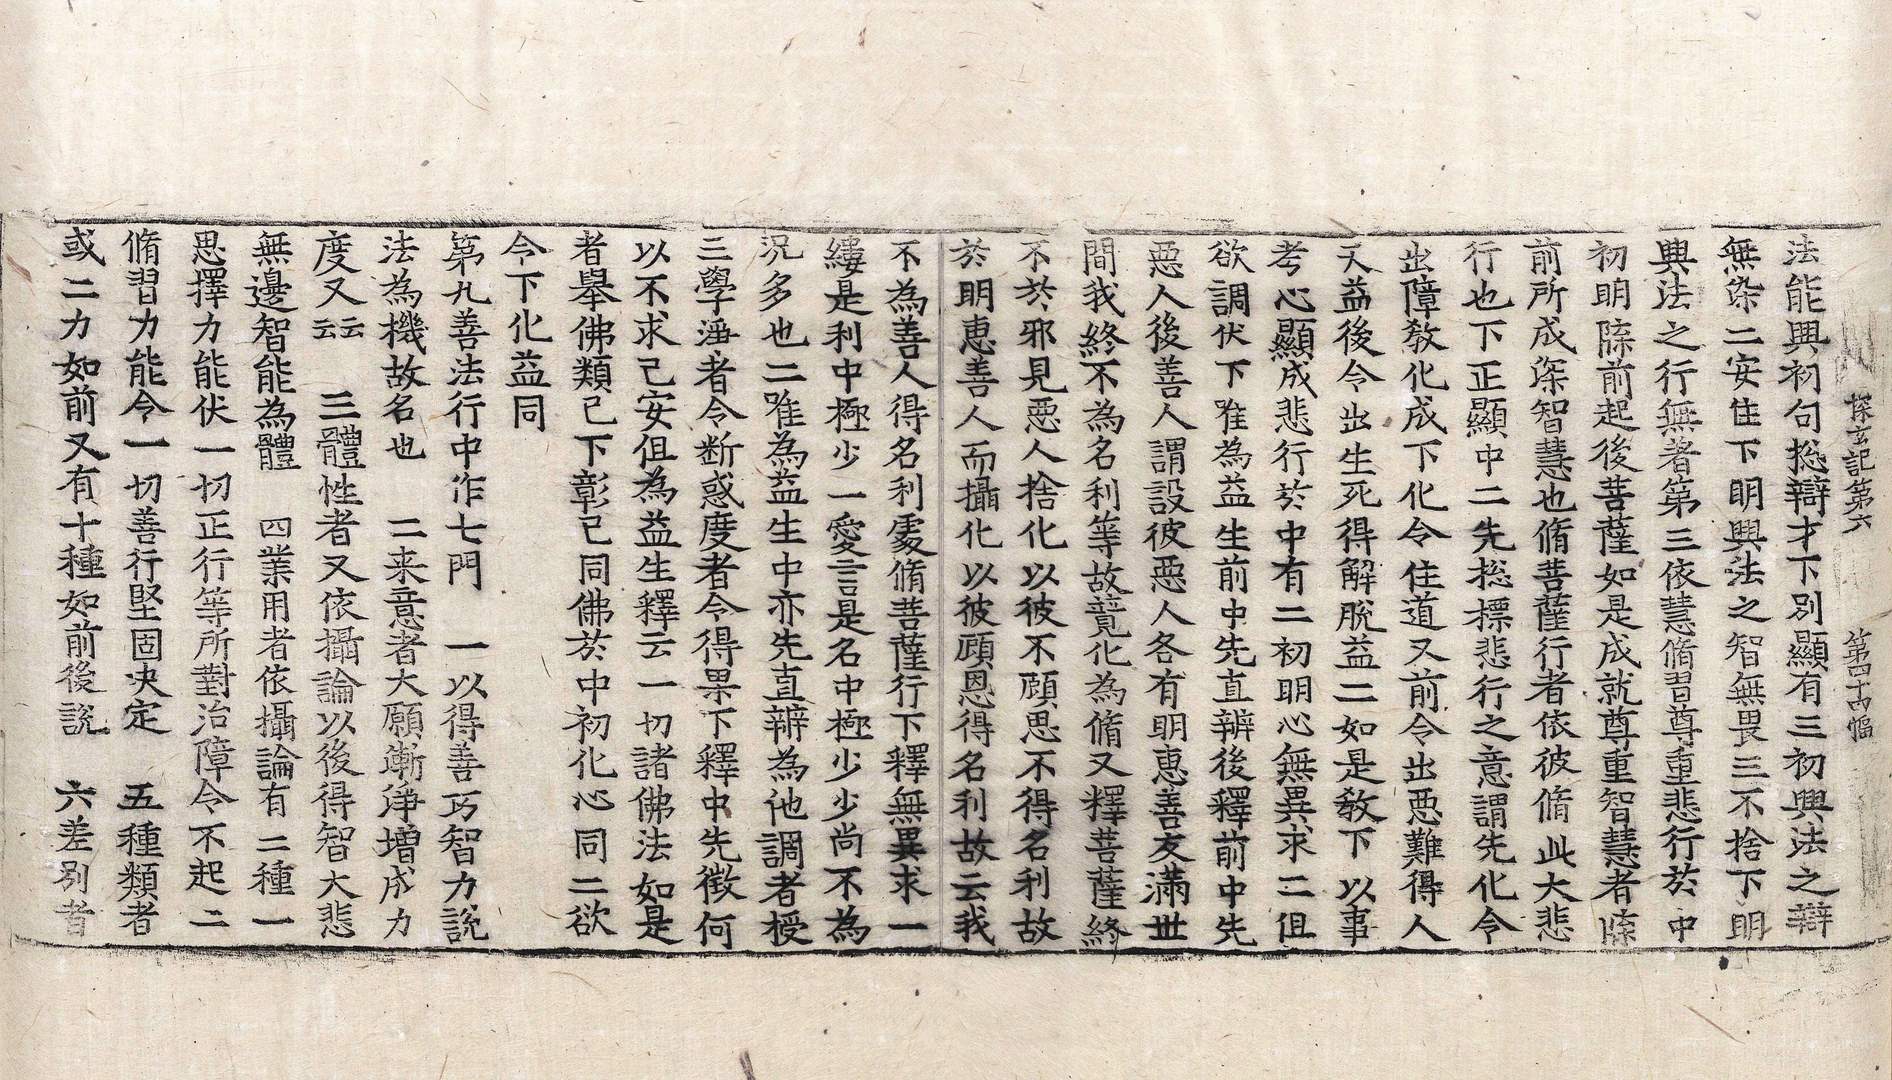 探玄記第六　第四十四幅
法能興初句捴辯才下別顯有三初興法之辯
無染二安住下明興法之智無畏三不捨下明
興法之行無著第三依慧脩習尊重悲行於中
初明除前起後菩薩如是成就尊重智慧者除
前所成深智慧也脩菩薩行者依彼脩此大悲
行也下正顯中二先捴標悲行之意謂先化令
出障教化成下化令住道又前令出惡難得人
天益後令出生死得解脫益二如是教下以事
考心顯成悲行於中有二初明心無異求二但
欲調伏下唯為益生前中先直辨後釋前中先
惡人後善人謂設彼惡人各有明恵善友滿世
間我終不為名利等故竟化為脩又釋菩薩終
不於邪見惡人捨化以彼不願思不得名利故
於明恵善人而攝化以彼顧恩得名利故云我
不為善人得名利處脩菩薩行下釋無異求一
縷是利中極少一愛言是名中極少少尚不為
況多也二唯為益生中亦先直辨為他調者授
三學淨者令断惑度者令得果下釋中先徵何
以不求己安但為益生釋云一切諸佛法如是
者舉佛類己下彰己同佛於中初化心同二欲
令下化益同
第九善法行中作七門　一以得善巧智力說
法為機故名也　二来意者大願漸淨增成力
度又云云　三體性者又依攝論以後得智大悲
無邊智能為體　四業用者依攝論有二種一
思擇力能伏一切正行等所對治障令不起二
脩習力能令一切善行堅固决定　五種類者
或二力如前又有十種如前後説　六差别者